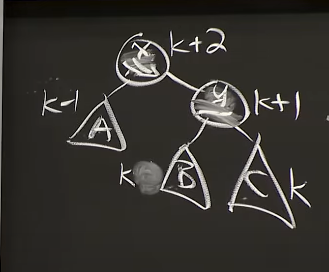 x k+2
k-1 y k+1
A
k B C k